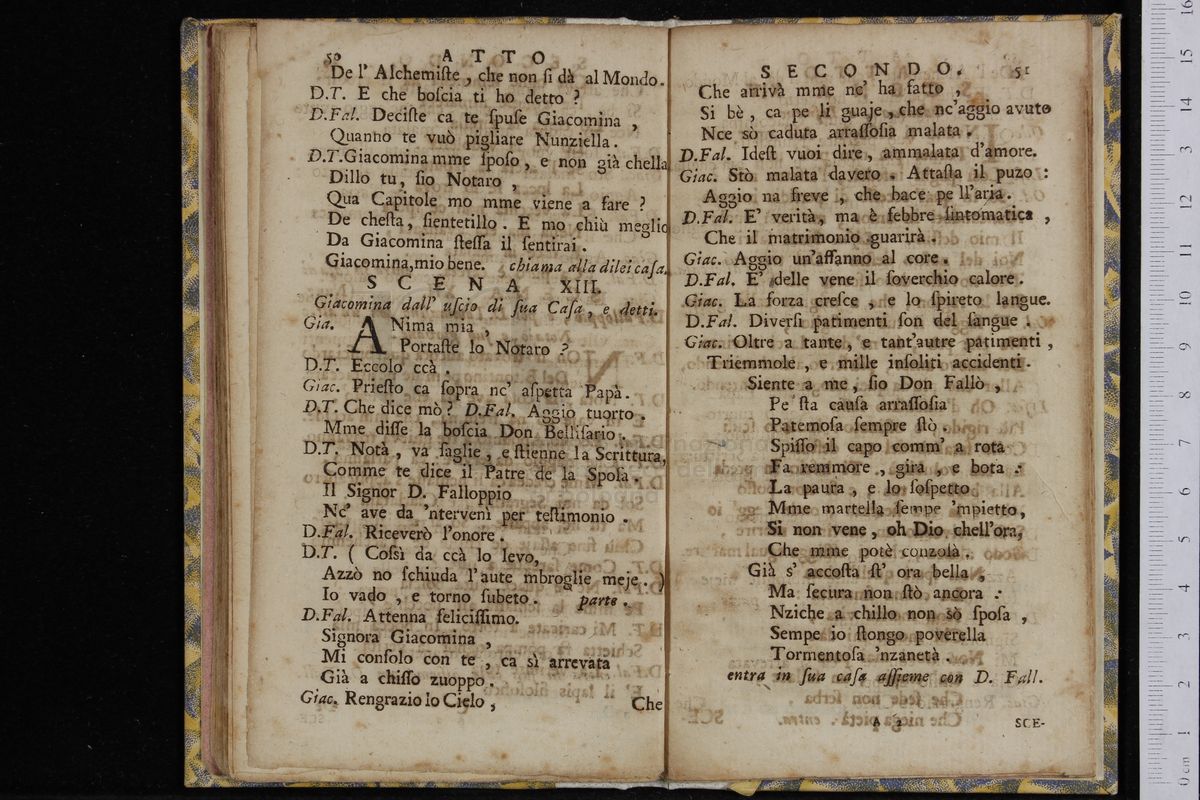 50 ATTO
De l' Alchemiſte, che non ſi dà al Mondo.
D.T. E che boſcia ti ho detto?
D.Fal. Deciſte ca te ſpuſe Giacomina,
Quanno te vuò pigliare Nunziella.
D.T. Giacomina mme ſpoſo, e non già chella
Dillo tu, ſio Notaro,
Qua Capitole mo mme viene a fare?
De cheſta, ſientetillo. E mo chiù meglio
Da Giacomina ſteſſa il ſentirai.
Giacomina, mio bene. chiama alla dilei caſa.
SCENA XIII.
Giacomina dall' uſcio di ſua Caſa, e detti.
Gia. ANima mia,
Portaſte lo Notaro?
D.T. Eccolo ccà.
Giac. Prieſto ca ſopra nc' aſpetta Papà.
D.T. Che dice mò? D.Fal. Aggio tuorto.
Mme diſſe la boſcia Don Belliſario.
D.T. Notà, va ſaglie, e ſtienne la Scrittura,
Comme te dice il Patre de la Spoſa.
Il Signor D. Falloppio
Nc' ave da 'ntervenì per teſtimonio.
D.Fal. Riceverò l'onore.
D.T. ( Coſsì da ccà lo levo,
Azzò no ſchiuda l'aute mbroglie meje. )
Io vado, e torno ſubeto. parte.
D.Fal. Attenna feliciſſimo.
Signora Giacomina,
Mi conſolo con te, ca sì arrevata
Già a chiſſo zuoppo.
Giac. Rengrazio lo Cielo,
Che
SECONDO. 51
Che arrivà mme nc' ha fatto,
Si bè, ca pe li guaje, che nc'aggio avuto
Nce sò caduta arraſſoſia malata.
D.Fal. Ideſt vuoi dire, ammalata d'amore.
Giac. Stò malata davero. Attaſta il puzo:
Aggio na freve, che bace pe ll'aria.
D.Fal. E' verità, ma è febbre ſintomatica,
Che il matrimonio guarirà.
Giac. Aggio un'affanno al core.
D.Fal. E' delle vene il ſoverchio calore.
Giac. La forza creſce, e lo ſpireto langue.
D.Fal. Diverſi patimenti ſon del ſangue.
Giac. Oltre a tante, e tant'autre patimenti,
Triemmole, e mille inſoliti accidenti.
Siente a me, ſio Don Fallò,
Pe ſta cauſa arraſſoſia
Patemoſa ſempre ſtò.
Spiſſo il capo comm' a rota
Fa remmore, gira, e bota:
La paura, e lo ſoſpetto
Mme martella ſempe 'mpietto,
Si non vene, oh Dio chell'ora,
Che mme potè conzolà.
Già s' accoſta ſt' ora bella,
Ma ſecura non ſtò ancora:
Nziche a chillo non sò ſpoſa,
Sempe io ſtongo poverella
Tormentoſa 'nzanetà.
entra in ſua caſa aſſieme con D. Fall.
A 2 SCE-